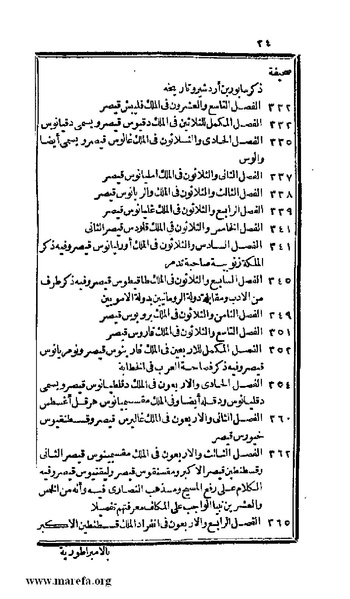 ٢٤
صحيفة
ذكر سابور بن أردشير وتاريخه
٣٣٢ الفصل التاسع والعشرون فى الملك فليبش قيصر
٣٣٣ الفصل المكمل للثلاثين فى الملك دقيوس قيصر ويسمى دقيانوس
٣٣٥ الفصل الحادى والثلاثون فى الملك غالوس قيصر ويسمى أيضا
والوس
٣٣٧ الفصل الثانى والثلاثون فى الملك امليانوس قيصر
٣٣٨ الفصل الثالث والثلاثون فى الملك والريانوس قيصر
٣٣٩ الفصل الرابع والثلاثون فى الملك غليانوس قيصر
٣٤١ الفصل الخامس والثلاثون فى الملك قلودس قيصر الثانى
٣٤١ الفصل السادس والثلاثون فى الملك أورليانوس قيصر وفيه ذكر
الملكة زنوبية صاحبة تدمر
٣٤٥ الفصل السابع والثلاثون فى الملك طاقيطوس قيصر وفيه ذكر طرف
من الادب ومقابلة دولة الرومانيين بدولة الامويين
٣٤٩ الفصل الثامن والثلاثون فى الملك بروبوس قيصر
٣٥١ الفصل التاسع والثلاثون فى الملك قاروس قيصر
٣٥٢ الفصل المكمل للاربعين فى الملك قارينوس قيصر ونومريانوس
قيصر وفيه ذكر فصاحة العرب فى الخطابة
٣٥٤ الفصل الحادى والاربعون فى الملك دقلطيانوس قيصر ويسمى
دقليانوس ودقله أيضا وفى الملك مقسميانوس هرقل أغسطس
٣٦٠ الفصل الثانى والاربعون فى الملك غاليرس قيصر وقسطنقيوس
خيورس قيصر
٣٦٢ الفصل الثالث والاربعون فى الملك مقسمينوس قيصر الثانى
وقسطنطين قيصر الاكبر ومقسنقوس قيصر وليقنيوس قيصر وفيه
الكلام على رفع المسيح ومذهب النصارى فيه وأنه من الخمس
والعشرين نبيا الواجب على المكلف معرفتهم تفصيلا
٣٦٥ الفصل الرابع والاربعون فى انفراد الملك قسطنطين الاكبر
بالامبراطورية
www.marefa.org